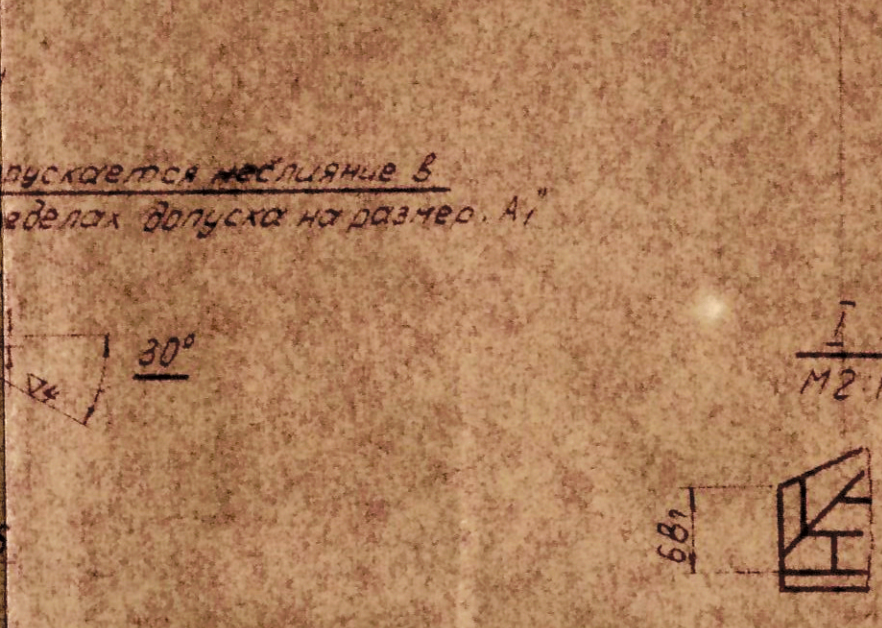 пускается неслияние в
еделах допуска на размер. А₁"
30°
▽4
I
М2:1
6В₇